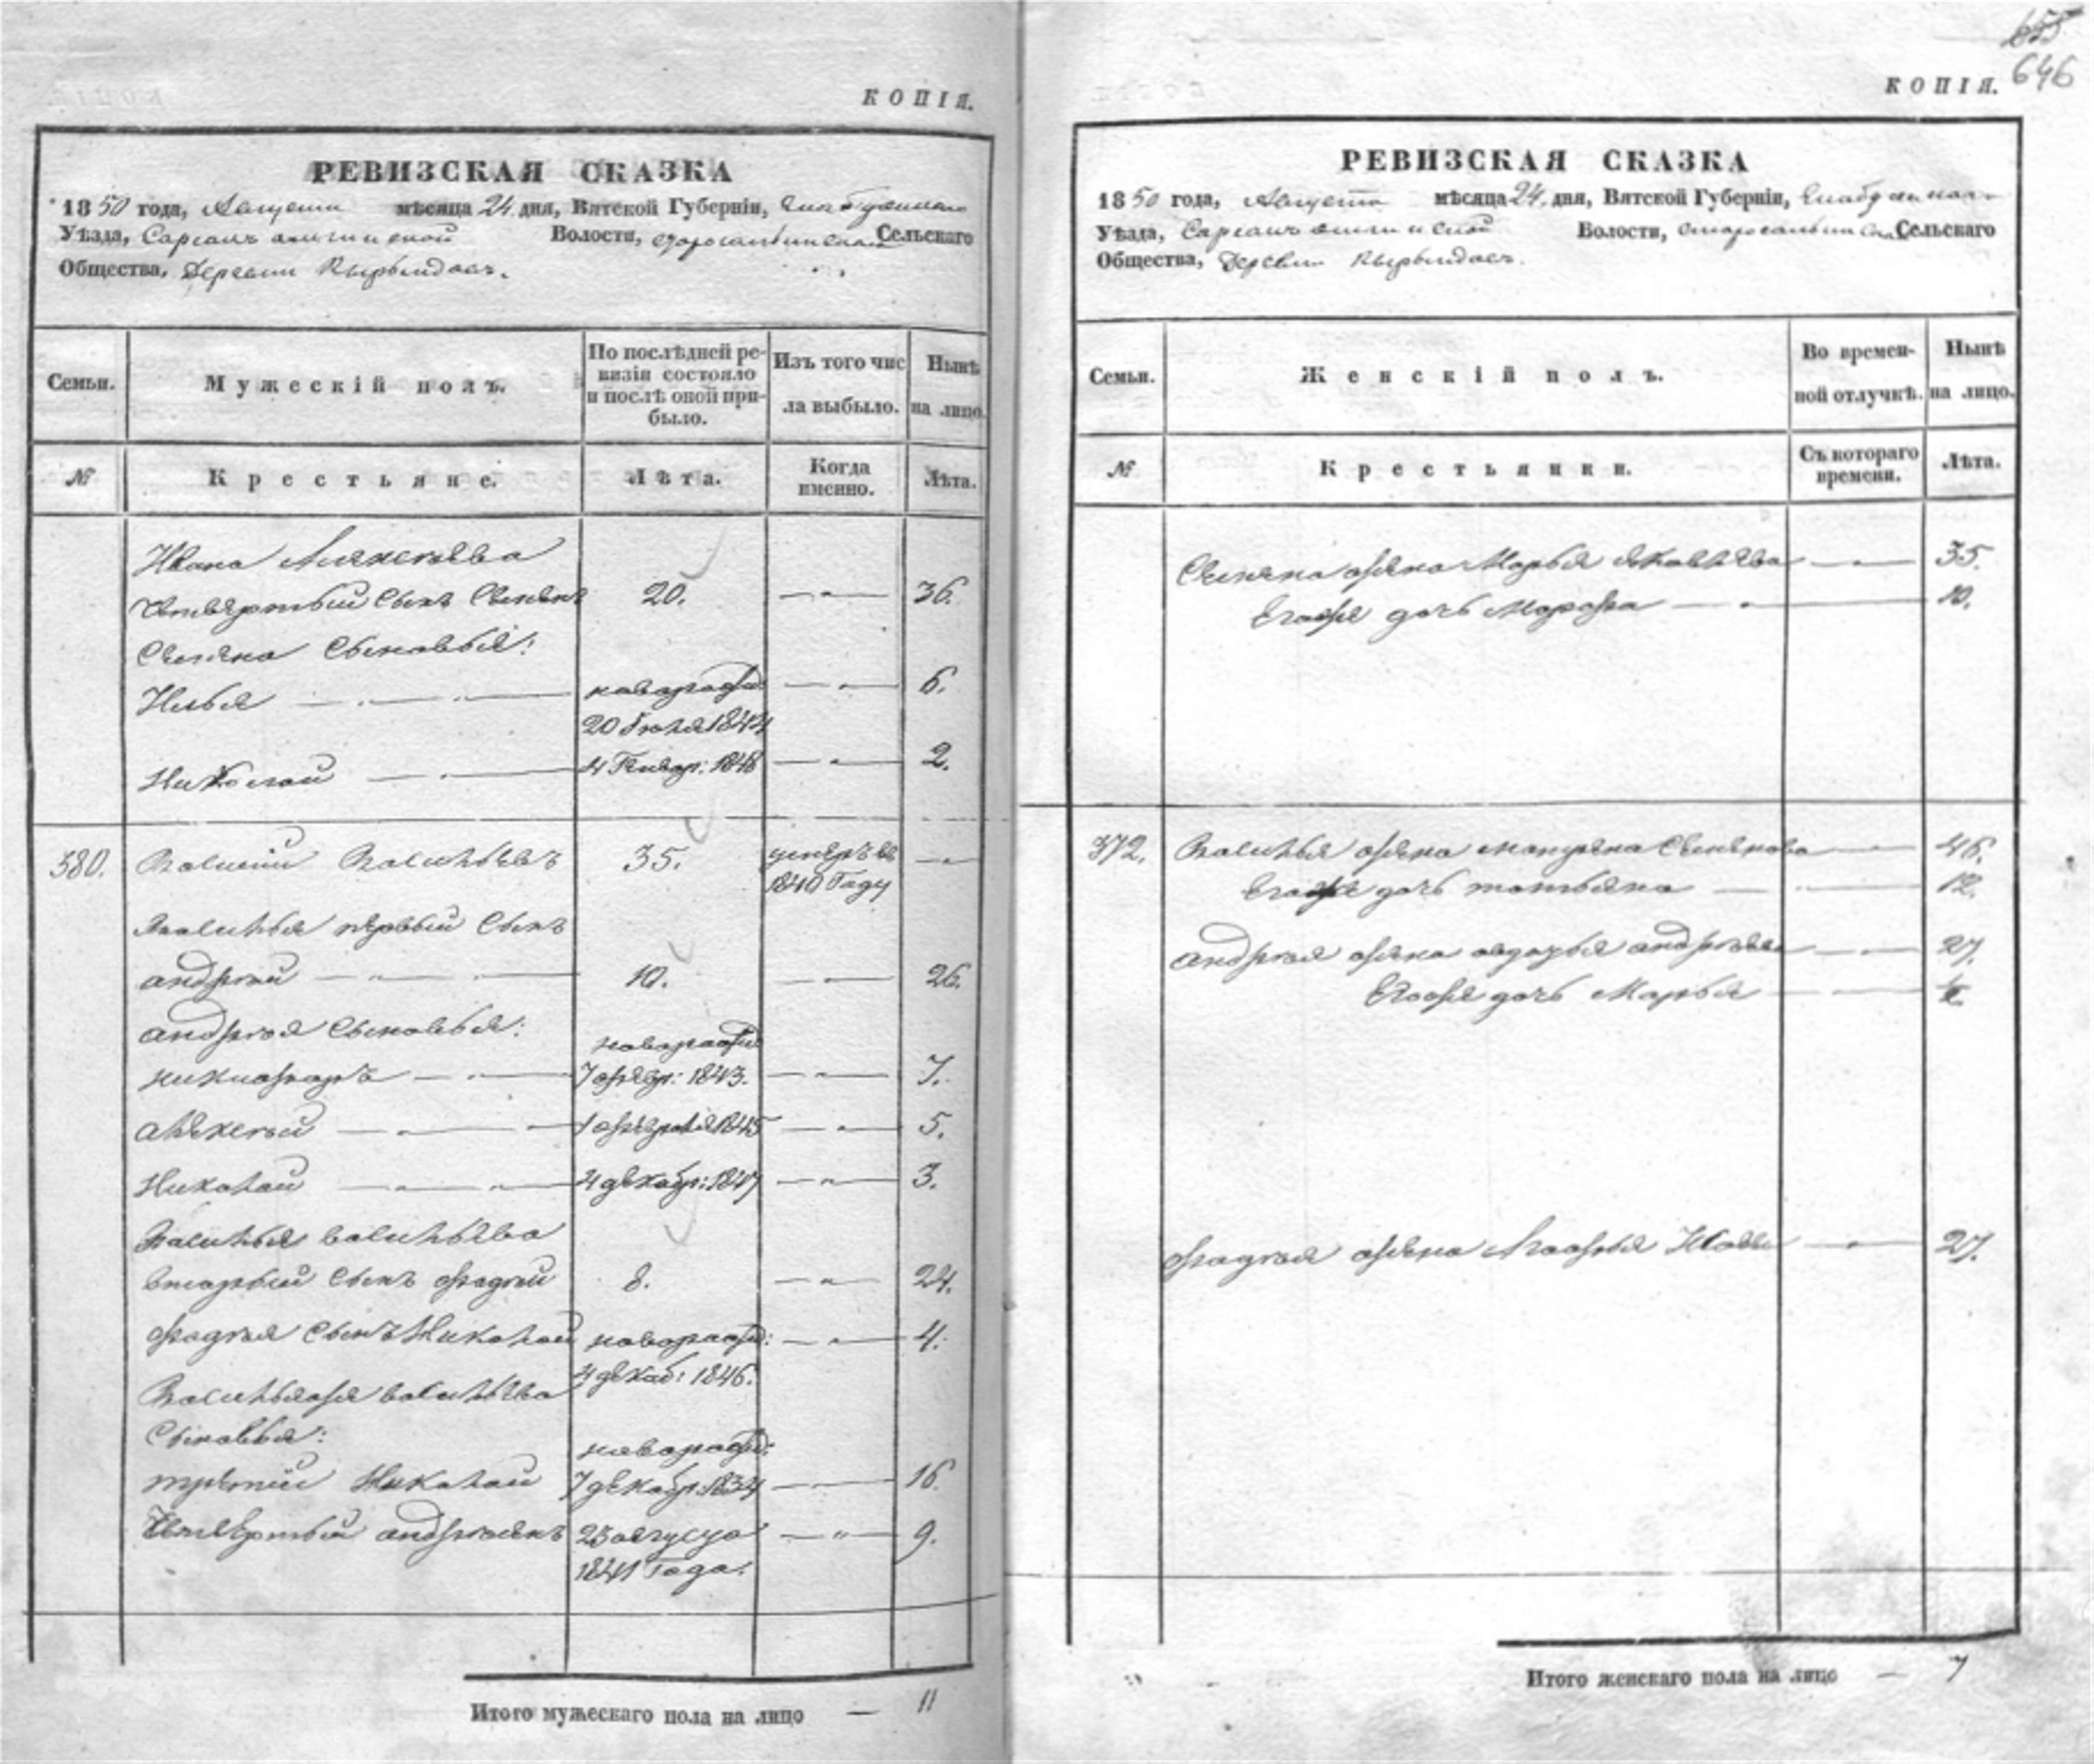 КОПІЯ.
РЕВИЗСКАЯ СКАЗКА
1850 года, Августа мѣсяца 24 дня, Вятской Губерніи, Елабужскаго
Уѣзда, Волости, Сельскаго
Общества, Деревни
Семьи.
Мужескій полъ.
По послѣдней ре-
визіи состояло
и послѣ оной при-
было.
Изъ того чис
ла выбыло.
Нынѣ
на лицо.
№
Крестьяне.
Лѣта.
Когда
именно.
Лѣта.
Ивана Алексѣева
Четвертый Сынъ Семенъ 20. — 36.
Семена Сыновья:
Илья — новорожд: — 6.
20 Іюля 1844
Николай — 4 Генвар: 1848 — 2.
380. Василій Васильевъ 35. умеръ въ —
1840 Году
Василья первый Сынъ
андрей — 10. — 26.
андрея Сыновья:
новорожд
никифоръ — 7 февр: 1843. — 7.
алексей — 1 февраля 1845 — 5.
Николай — 4 декабр: 1847 — 3.
Васильья васильева
вторый Сынъ фадей 8. — 24.
фадея Сынъ Николай новорожд: — 4.
4 декаб: 1846.
Васильяжа васильева
Сыновья:
новорожд:
третій Николай 7 декабр: 1834 — 16
Четвертый андреянъ 25 августа — 9.
1841 Года.
Итого мужескаго пола на лицо — 11
655
646
КОПІЯ.
РЕВИЗСКАЯ СКАЗКА
1850 года, Августа мѣсяца 24 дня, Вятской Губерніи, Елабужскаго
Уѣзда, Волости, Сельскаго
Общества, Деревни
Семьи.
Женскій полъ.
Во времен-
ной отлучкѣ.
Нынѣ
на лицо.
№
Крестьянки.
Съ котораго
времени.
Лѣта.
Семена жена Марья Яковлева — 35.
Егоже дочь — 10.
372. Васильья жена Семенова — 46.
Егоже дочь татьяна — 12.
андрея жена авдотья андреева — 27.
Егоже дочь Марья —
фадея жена Агафья — 27.
Итого женскаго пола на лицо — 7